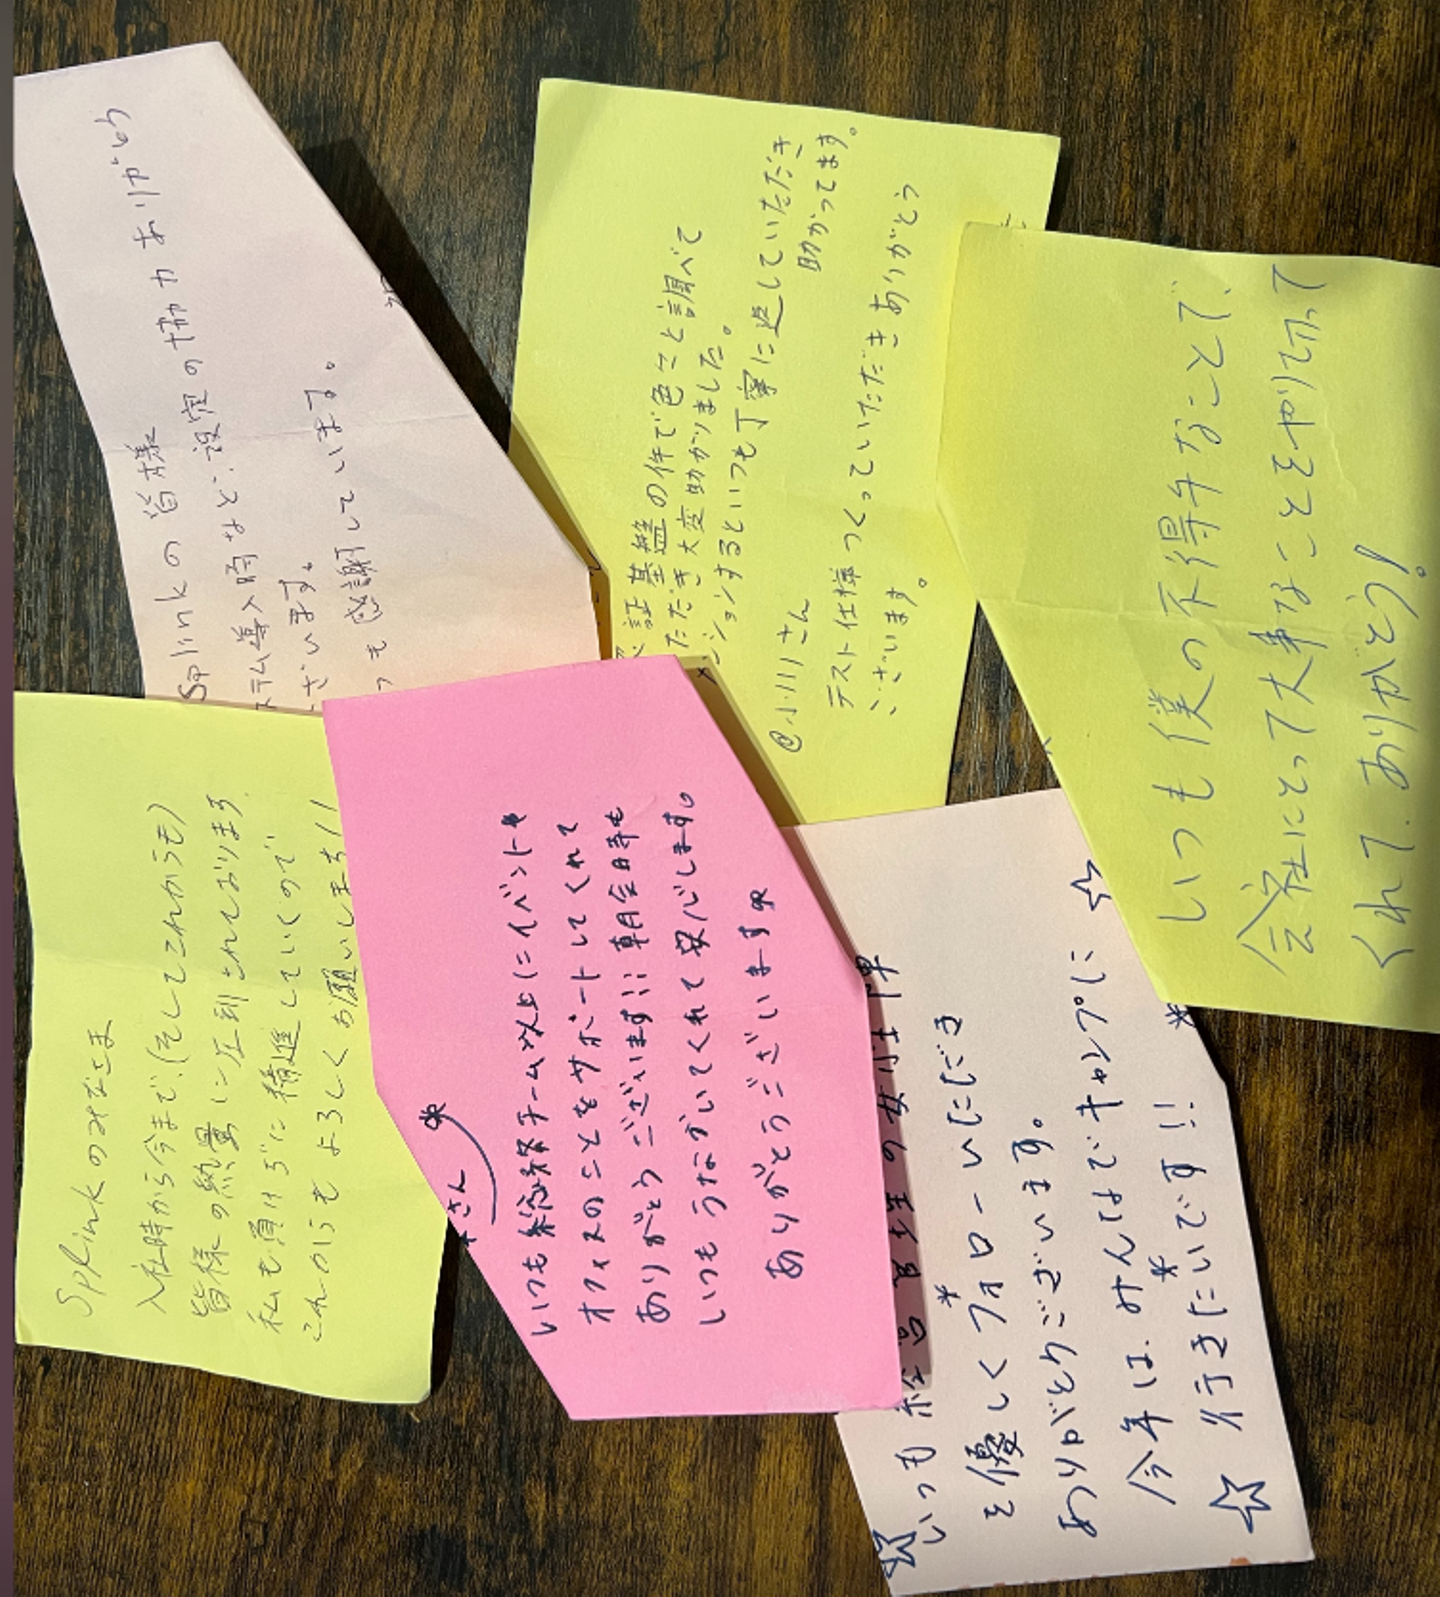 Splinkの皆様
ステム導入時など、設定の協力ありがとう
ざいます。
っも感謝しています。
証基盤の件で色々と調べて
ただき大変助かりました。
ンションするといつも丁寧に返していただき
助かってます。
@小川さん
テスト仕様つくっていただきありがとう
ございます。
いつも僕の不得手なことで、
会社にとって大事なことをやり切って
くれて、ありがとう!
Splinkのみなさま
入社時から今まで(そしてこれからも)
皆様の熱量に圧倒されております。
私も負けずに精進していくので
これからもよろしくお願いします!!
さん
いつも総務チーム以上にイベントや
オフィスのことをサポートしてくれて
ありがとうございます!!! 朝会時も
いつもうなずいてくれて安心します。
ありがとうございます
☆いつも
を優しくフォローいただき
ありがとうございます。
今年は、みんなでキャンプに☆
☆行きたいです!!